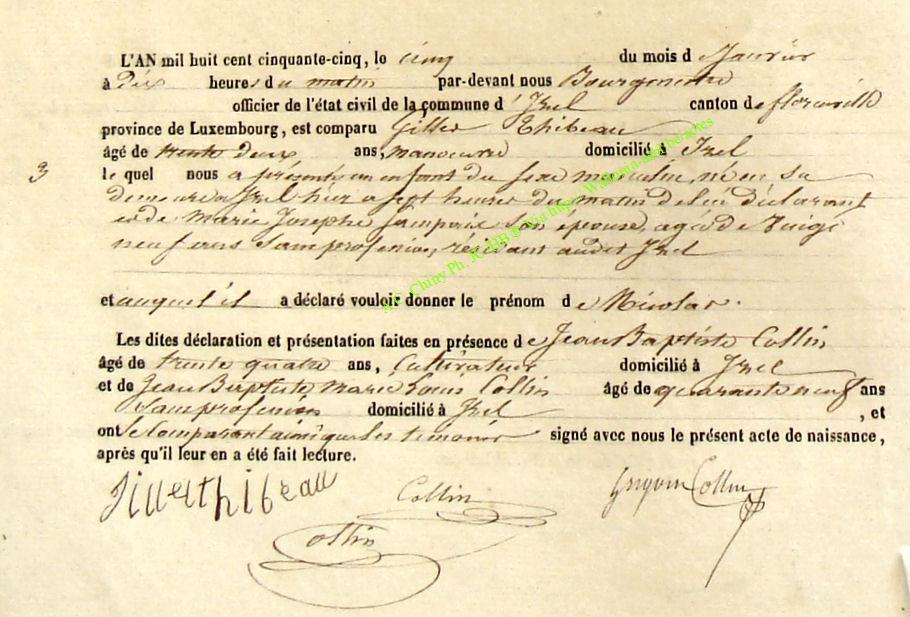 L'AN mil huit cent cinquante-cinq, le cinq du mois de Janvier
à Dix heures du matin par-devant nous Bourgmestre
officier de l'état civil de la commune d'Izel canton de florenville
province de Luxembourg, est comparu Gilles Thibeau
âgé de trente deux ans, manoeuvre domicilié à Izel
3 le quel nous a présenté un enfant du sexe masculin, né en sa
demeure a Izel hier a sept heures du matin de lui déclarant
et de Marie Josephe son epouse, agée de
neuf ans Sans profession, résidant audit Izel
et auquel il a déclaré vouloir donner le prénom de Nicolas.
Les dites déclaration et présentation faites en présence de Jean Baptiste Collin
âgé de trente quatre ans, Cultivateur domicilié à Izel
et de Jean Baptiste Marie Louis Collin âgé de quarante neuf ans
Sans profession domicilié à Izel , et
ont le Comparant ainsi que les temoins signé avec nous le présent acte de naissance,
après qu'il leur en a été fait lecture.
Gillesthibeau Collin Collin
Collin